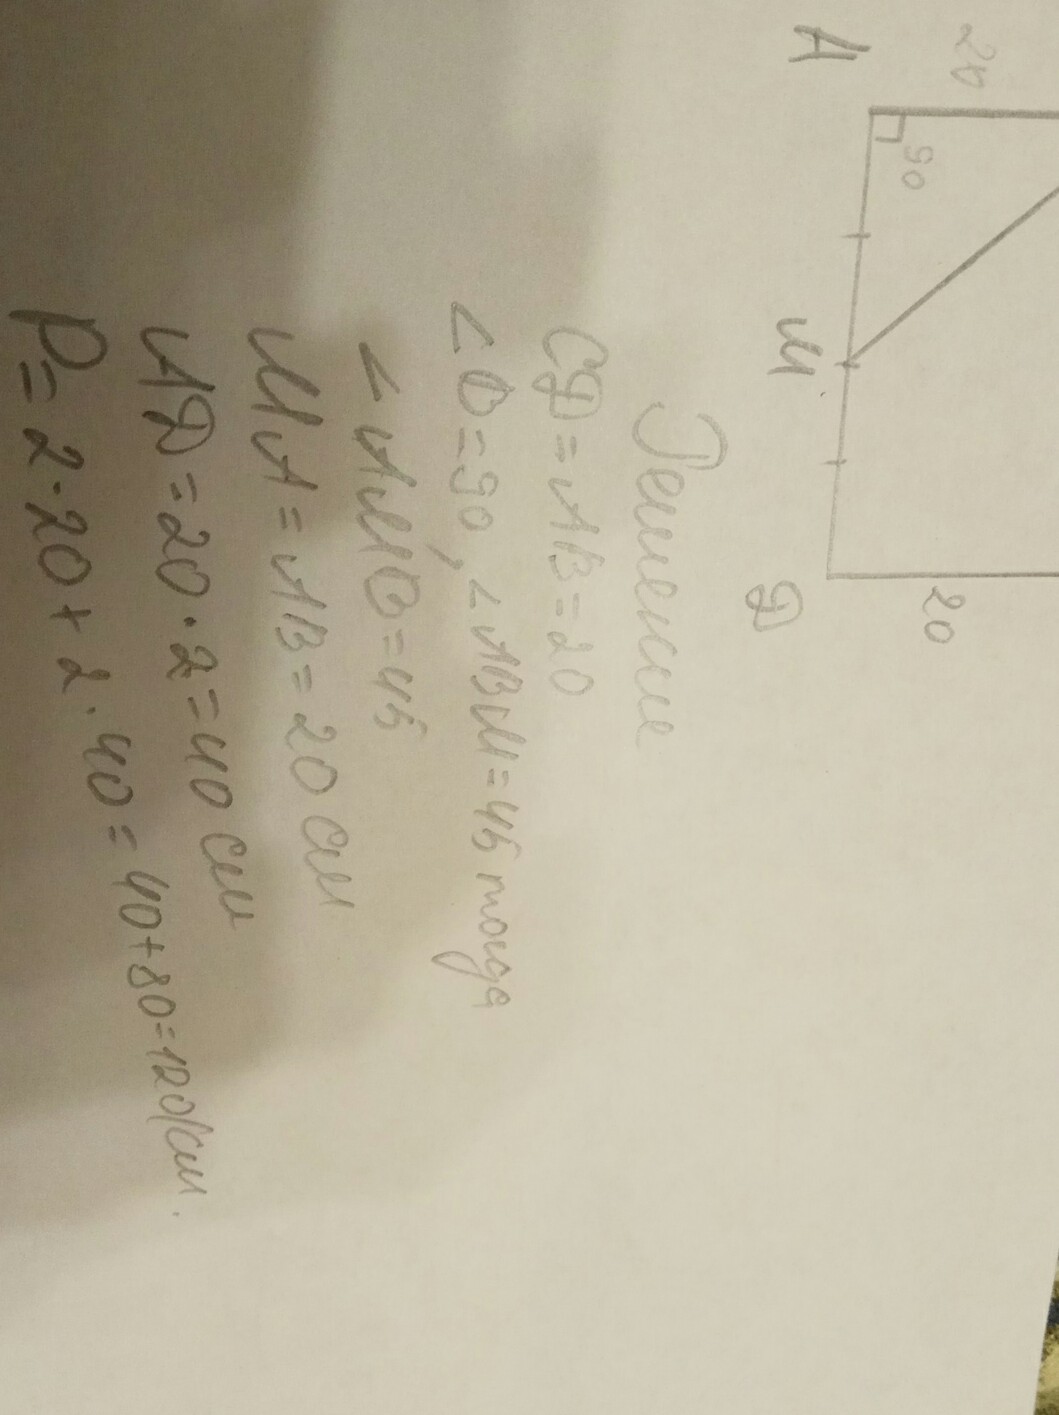 20
A
90
М
D
20
Решение
CD=AB=20
<B=90, <ABM=45 тогда
<AMB=45
MA=AB=20 см
AD=20·2=40 см
P=2·20+2·40=40+80=120(см.